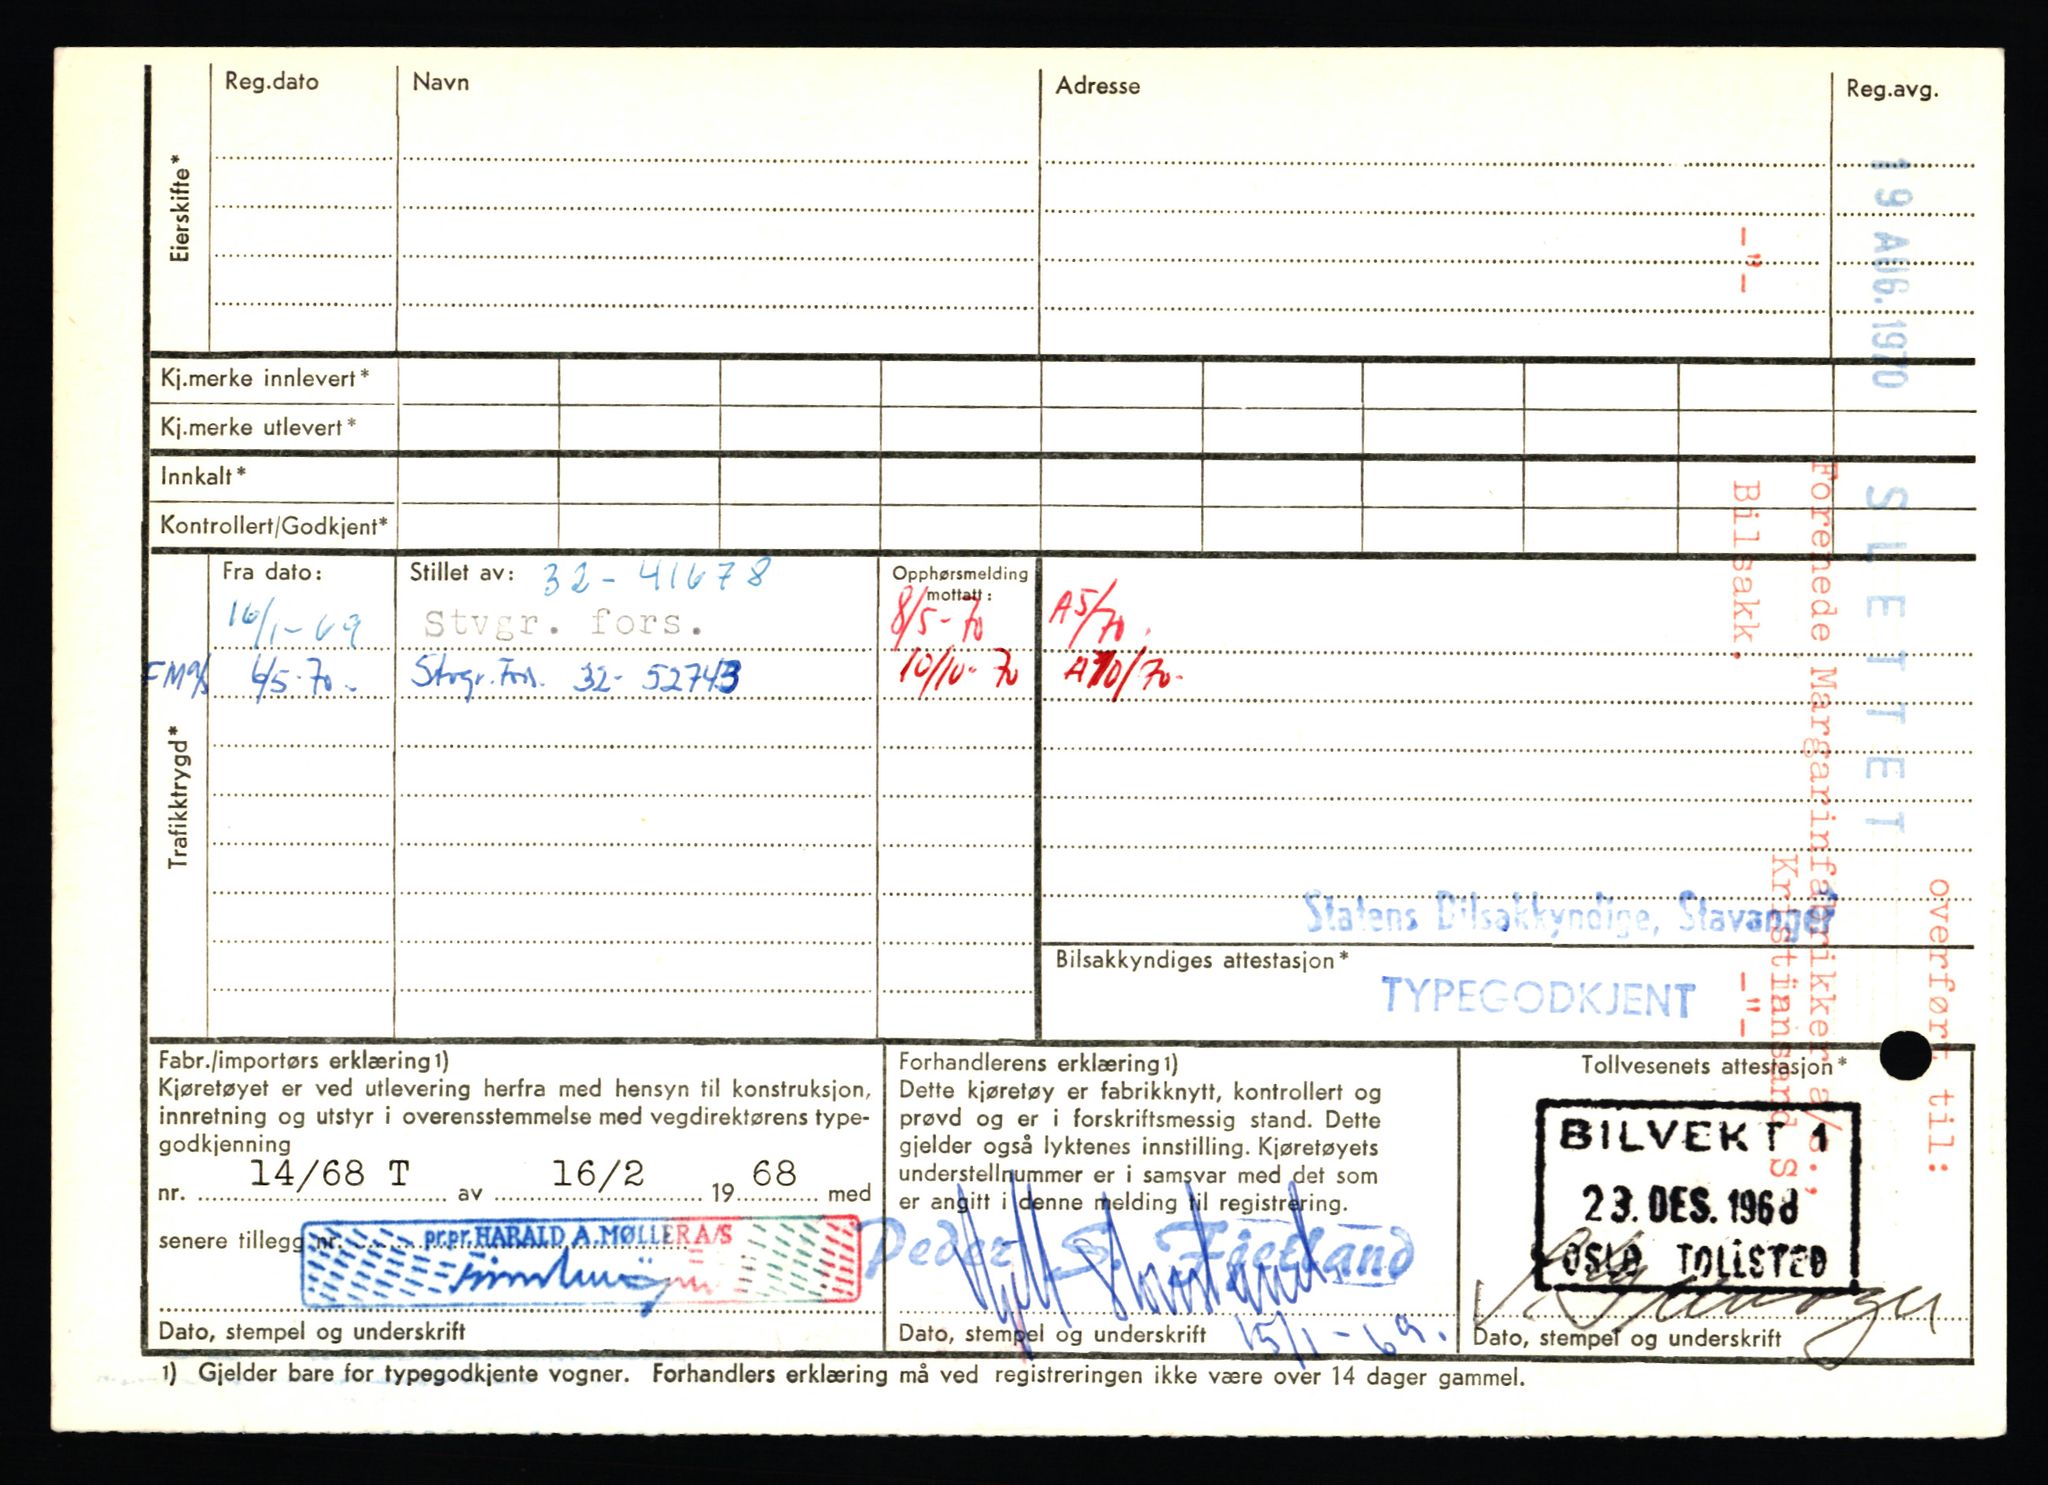 Reg.dato Navn Adresse Reg.avg.
Eierskifte*
19 AUG. 1970
SLETTET
overført til:
Forenede Margarinfabrikker a/s.,
Kristiansand S
-"- Bilsakk. -"-
Kj.merke innlevert*
Kj.merke utlevert*
Innkalt*
Kontrollert/Godkjent*
Trafikktrygd*
Fra dato: Stillet av: 32-41678 Opphørsmelding mottatt:
16/1-69 Stvgr. fors. 8/5-70 A5/70.
FMa/s 6/5-70. Stvgr. Fors. 32-52743 10/10-70 A10/70.
Statens Bilsakkyndige, Stavanger
Bilsakkyndiges attestasjon*
TYPEGODKJENT
Fabr./importørs erklæring1)
Kjøretøyet er ved utlevering herfra med hensyn til konstruksjon,
innretning og utstyr i overensstemmelse med vegdirektørens type-
godkjenning
nr. 14/68 T av 16/2 1968 med
senere tillegg nr.
pr.pr. HARALD A. MØLLER A/S
Dato, stempel og underskrift
Forhandlerens erklæring1)
Dette kjøretøy er fabrikknytt, kontrollert og
prøvd og er i forskriftsmessig stand. Dette
gjelder også lyktenes innstilling. Kjøretøyets
understellnummer er i samsvar med det som
er angitt i denne melding til registrering.
Peder S. Fjetland
Dato, stempel og underskrift 15/1-69.
Tollvesenets attestasjon*
BILVEKT 1
23. DES. 1968
OSLO TOLLSTED
Dato, stempel og underskrift
1) Gjelder bare for typegodkjente vogner. Forhandlers erklæring må ved registreringen ikke være over 14 dager gammel.